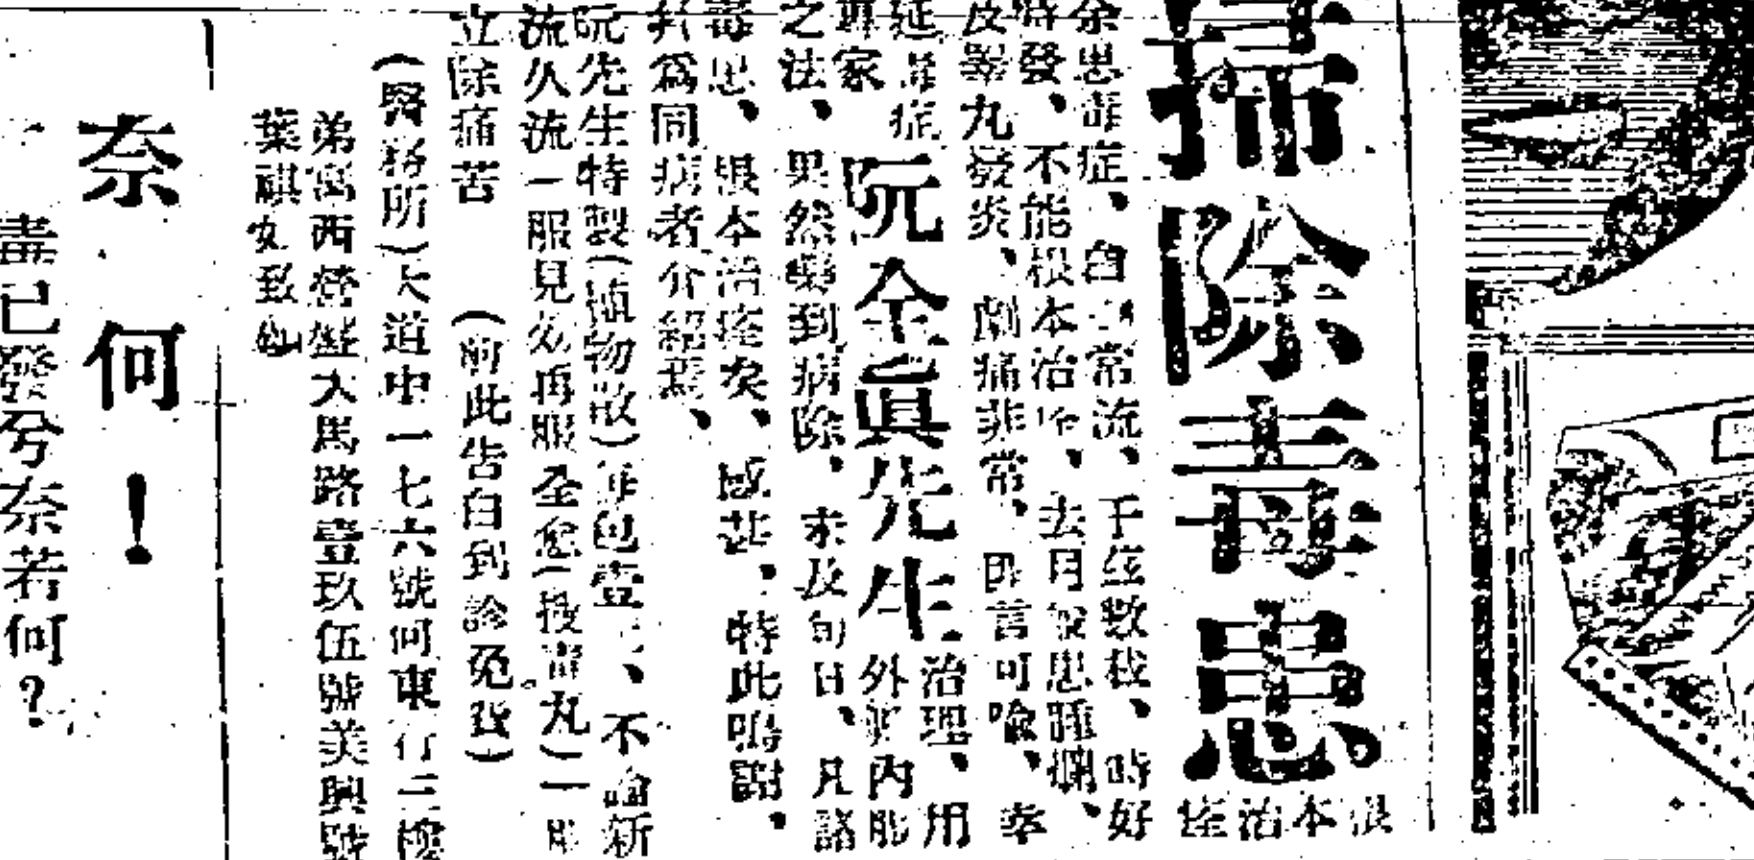 掃除毒患
根本治痊
余患毒症、白 常流、于 數載、時好
時發、不能根本治 、去月 患腫爛、
皮睾丸發炎、劇痛非常、 言可喻、幸
延 症 阮金眞先生 治理、用
專家 外 內
之法、果然藥到病除、未及旬日、凡諸
毒患、根本治痊矣、感甚、特此鳴謝、
幷爲同病者介紹焉、
阮先生特製(植物散)每包壹 、不論新
流久流一服見 再服全愈( 毒丸)一
立除痛苦 (前此告白到診免費)
(醫務所)大道中一七六號何東行三樓
弟寓西營盤大馬路壹玖伍號美興號
葉祺安致
奈何!
毒已發兮奈若何?